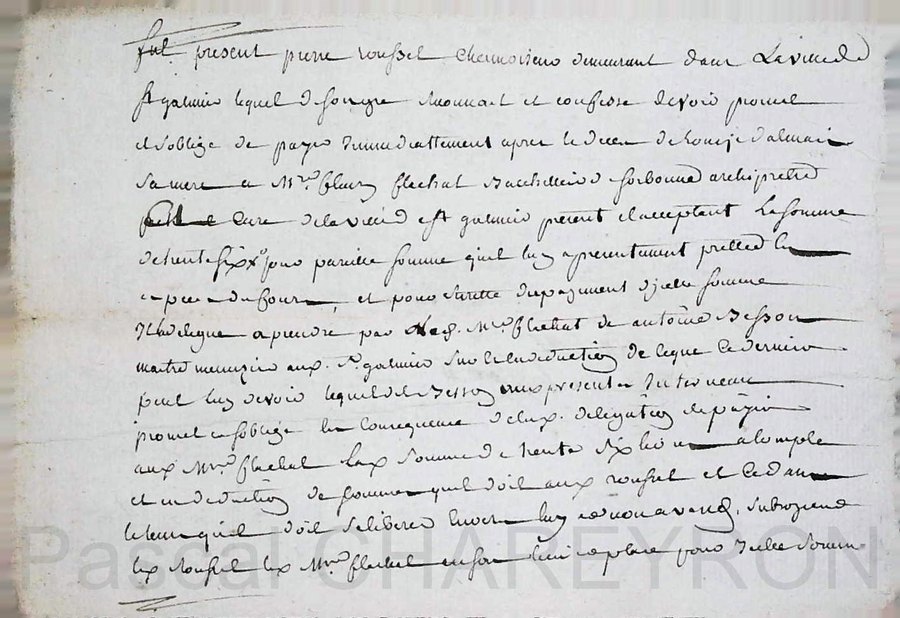 fut present pierre roussel Chamoiseur demeurant dans La ville de
st galmier lequel de son gre reconnait et confesse devoir promet
et soblige de payer immediattement apres le deces de
sa mere a Mre fleury flachat Bachellier de sorbonne archipretre
Cure de la ville de st galmier present et acceptant La somme
de trente six # pour pareille somme quil luy a presentement prettee
et pour surette du payment dicelle somme
Il delegue a prendre par led. Mre flachat de antoine Besson
maitre menuzier aud. St galmier sur et en deduction de ce que ce dernier
peut luy devoir lequel dit Besson aux presentes
promet et soblige En Consequence de lad. delegation de payer
aud Mre flachat lad somme de trente six livres a compte
et en deduction de somme quil doit aud roussel et
quil doit se liberer Envers luy subrogeant
led roussel led Mre flachat en son lieu et place pour Icelle somme
Pascal CHAREYRON